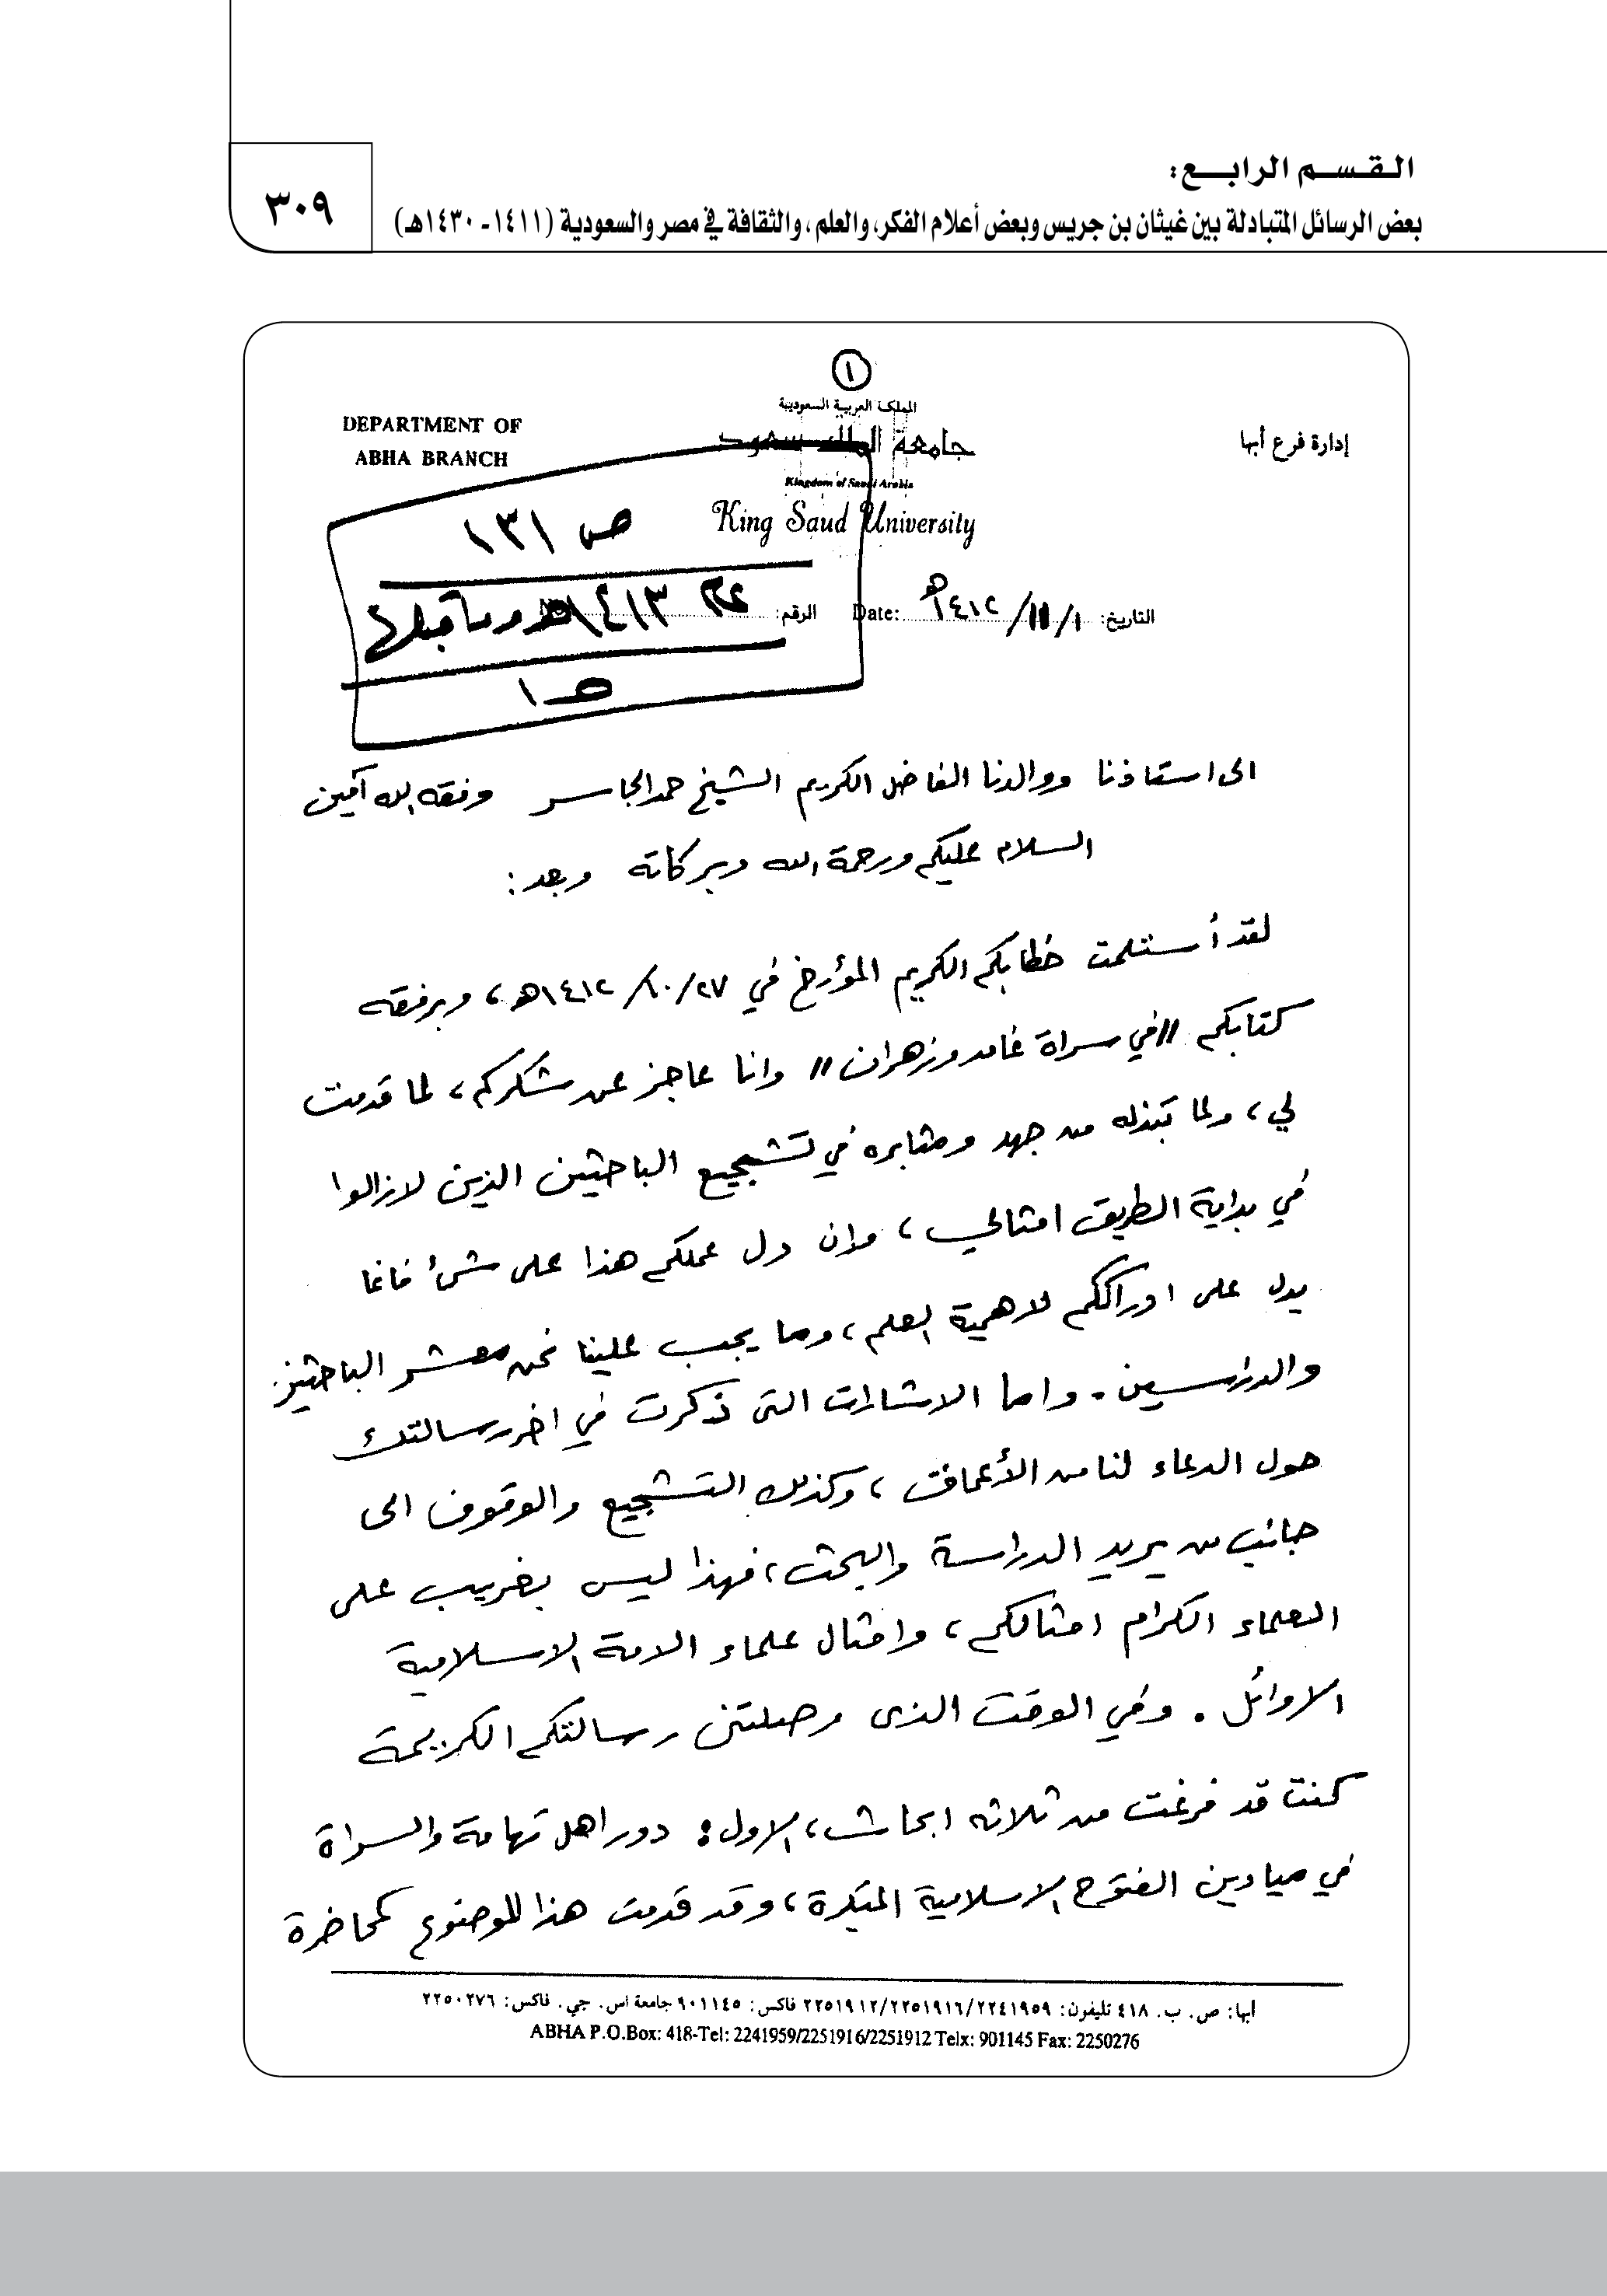 القسم الرابع:
بعض الرسائل المتبادلة بين غيثان بن جريس وبعض أعلام الفكر، والعلم، والثقافة في مصر والسعودية (١٤١١- ١٤٣٠هـ)
٣٠٩
١
المملكة العربية السعودية
جامعة الملك سعود
Kingdom of Saudi Arabia
King Saud University
إدارة فرع أبها
DEPARTMENT OF
ABHA BRANCH
ص ١٣١
١٤١٣ وما قبلها
هـ ١
التاريخ: ١/١١/١٤١٢هـ Date: الرقم:
الى استاذنا ووالدنا الفاضل الكريم الشيخ حمد الجاسر وفقه الله آمين
السلام عليكم ورحمة الله وبركاته وبعد:
لقد أستلمت خطابكم الكريم المؤرخ في ٢٧/١٠/١٤١٢هـ، وبرفقه
كتابكم "في سراة غامد وزهران" وانا عاجز عن شكركم، لما قدمت
لي، ولما تبذله من جهد ومثابره في تشجيع الباحثين الذين لازالوا
في بداية الطريق امثالي، وان دل عملكم هذا على شئ فانما
يدل على ادراككم لاهمية العلم، وما يجب علينا نحن معشر الباحثين
والدارسين. واما الاشارات التى ذكرت في اخر رسالتك
حول الدعاء لنا من الأعماق، وكذلك التشجيع والوقوف الى
جانب من يريد الدراسة والبحث، فهذا ليس بغريب على
العلماء الكرام امثالكم، وامثال علماء الامة الاسلامية
الاوائل. وفي الوقت الذى وصلتني رسالتكم الكريمة
كنت قد فرغت من ثلاثه ابحاث، الاول: دور اهل تهامة والسراة
في ميادين الفتوح الاسلامية المبكرة، وقد قدمت هذا الموضوع كمحاضرة
ابها: ص. ب. ٤١٨ تليفون: ٢٢٤١٩٥٩/٢٢٥١٩١٦/٢٢٥١٩١٢ فاكس: ٩٠١١٤٥ جامعة اس. جي. فاكس: ٢٢٥٠٢٧٦
ABHA P.O.Box: 418-Tel: 2241959/2251916/2251912 Telx: 901145 Fax: 2250276